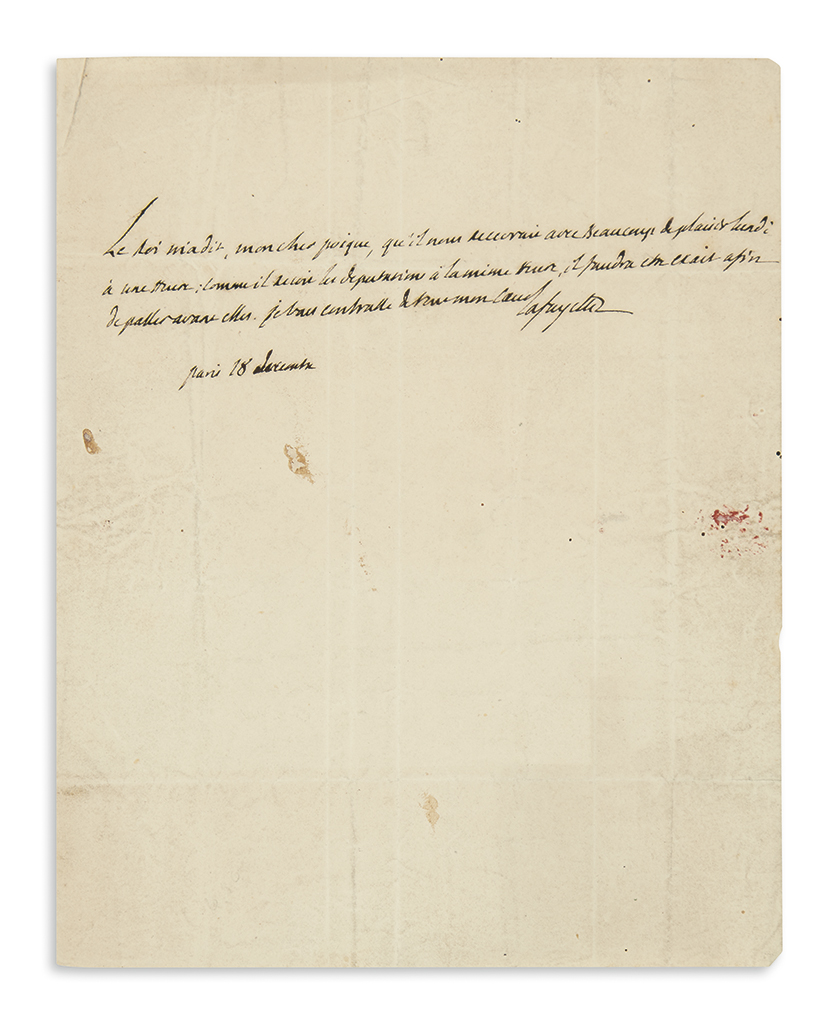 Le Roi m'a dit, mon cher poique, qu'il nous recevrait avec beaucoup de plaisir lundi
à une heure; comme il recoit les deputations à la même heure, il faudra etre exait afin
de passer avant elles. je vous embrasse de tout mon coeur Lafayette
paris 18 decembre